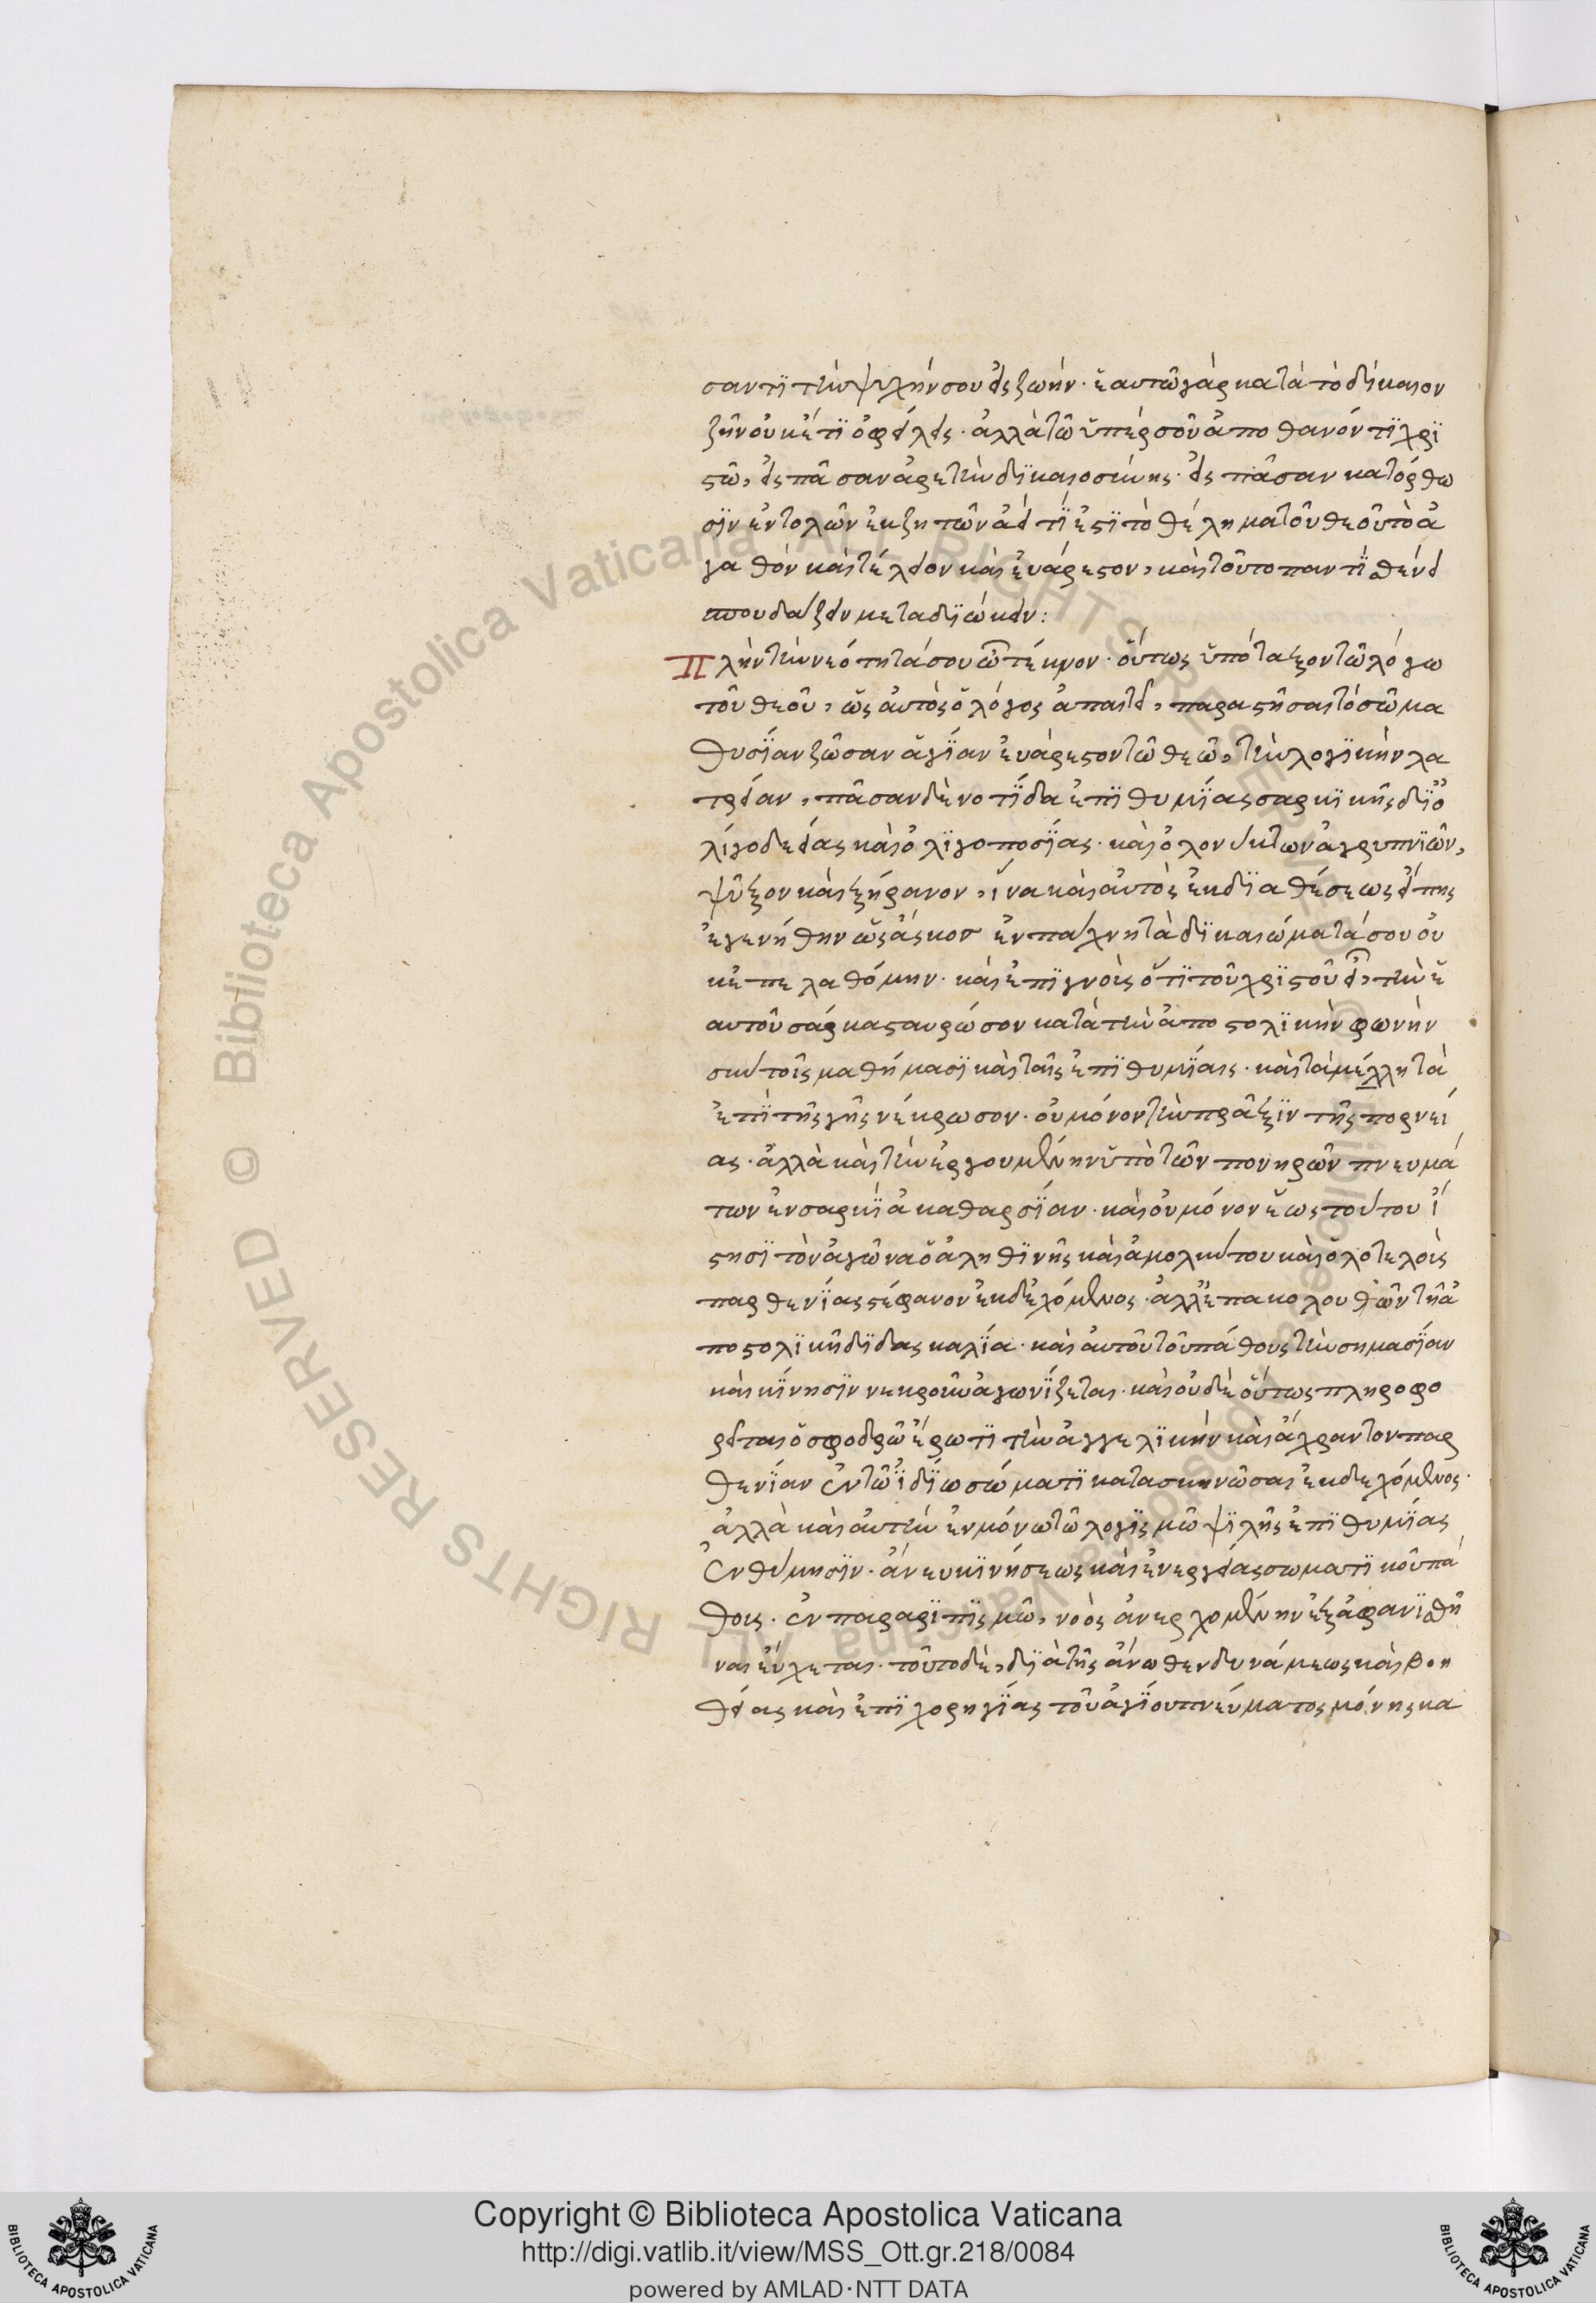 σαντι τὴν ψυχήν σου εἰς ζωήν· ἑαυτῶ γὰρ κατὰ τὸ δίκαιον
ζῆν οὐκέτι ὀφείλεις· ἀλλὰ τῶ ὑπὲρ σοῦ ἀποθανόντι χρι
στῶ, εἰς πᾶσαν ἀρετὴν δικαιοσύνης· εἰς πᾶσαν κατόρθω
σιν ἐντολῶν ἐκζητῶν ἀεὶ τί ἐστι τὸ θέλημα τοῦ θεοῦ τὸ ἀ
γαθὸν καὶ τέλειον καὶ εὐάρεστον, καὶ τοῦτο παντὶ σθένει
σπουδάζειν μεταδιώκειν:
Πλὴν τὴν νεότητά σου ὦ τέκνον· οὕτως ὑπόταξον τῶ λόγω
τοῦ θεοῦ, ὡς αὐτὸς ὁ λόγος ἀπαιτεῖ, παραστῆσαι τὸ σῶμα
θυσίαν ζῶσαν ἁγίαν εὐάρεστον τῶ θεῶ, τὴν λογικὴν λα
τρείαν, πᾶσαν δὲ νοτίδα ἐπιθυμίας σαρκικῆς δι ὀ
λιγοδεείας καὶ ὀλιγοποσίας· καὶ ὁλονύκτων ἀγρυπνιῶν,
ψῦξον καὶ ξήρανον, ἵνα καὶ αὐτὸς ἐκ διαθέσεως εἴπης
ἐγενήθην ὡς ἀσκὸς ἐν πάχνη τὰ δικαιώματά σου οὐ
κ ἐπελαθόμην· καὶ ἐπιγνοὺς ὅτι τοῦ χριστοῦ εἶ, τὴν ἑ
αυτοῦ σάρκα σταύρωσον κατὰ τὴν ἀποστολικὴν φωνὴν
σὺν τοῖς παθήμασι καὶ ταῖς ἐπιθυμίαις· καὶ τὰ μέλλη τὰ
ἐπὶ τῆς γῆς νέκρωσον· οὐ μόνον τὴν πρᾶξιν τῆς πορνεί
ας· ἀλλὰ καὶ τὴν ἐργουμένην ὑπὸ τῶν πονηρῶν πνευμά
των ἐν σαρκὶ ἀκαθαρσίαν· καὶ οὐ μόνον ἕως τούτου ἵ
στησι τὸν ἀγῶνα ὁ ἀληθινῆς καὶ ἀμολύντου καὶ ὁλοτελοῦς
παρθενίας στέφανον ἐκδεχόμενος· ἀλλ ἐπακολουθῶν τῆ ἀ
ποστολικῆ διδασκαλία· καὶ αὐτοῦ τοῦ πάθους τὴν σημασίαν
καὶ κίνησιν νεκροῦν ἀγωνίζεται· καὶ οὐδὲ οὕτως πληροφο
ρεῖται ὁ σφοδρῶ ἔρωτι τὴν ἀγγελικὴν καὶ ἄχραντον παρ
θενίαν ἐν τῶ ἰδίω σώματι κατασκηνῶσαι ἐκδεχόμενος·
ἀλλὰ καὶ αὐτὴν ἐν μόνω τῶ λογισμῶ ψιλῆς ἐπιθυμίας
ἐνθύμησιν· ἄνευ κινήσεως καὶ ἐνεργείας σωματικοῦ πά
θους· ἐν παραριπισμῶ, νοὸς ἀνερχομένην ἐξαφανισθῆ
ναι εὔχεται· τοῦτο δὲ, διὰ τῆς ἄνωθεν δυνάμεως καὶ βοη
θείας καὶ ἐπιχορηγίας τοῦ ἁγίου πνεύματος μόνης κα
Copyright © Biblioteca Apostolica Vaticana
http://digi.vatlib.it/view/MSS_Ott.gr.218/0084
powered by AMLAD·NTT DATA